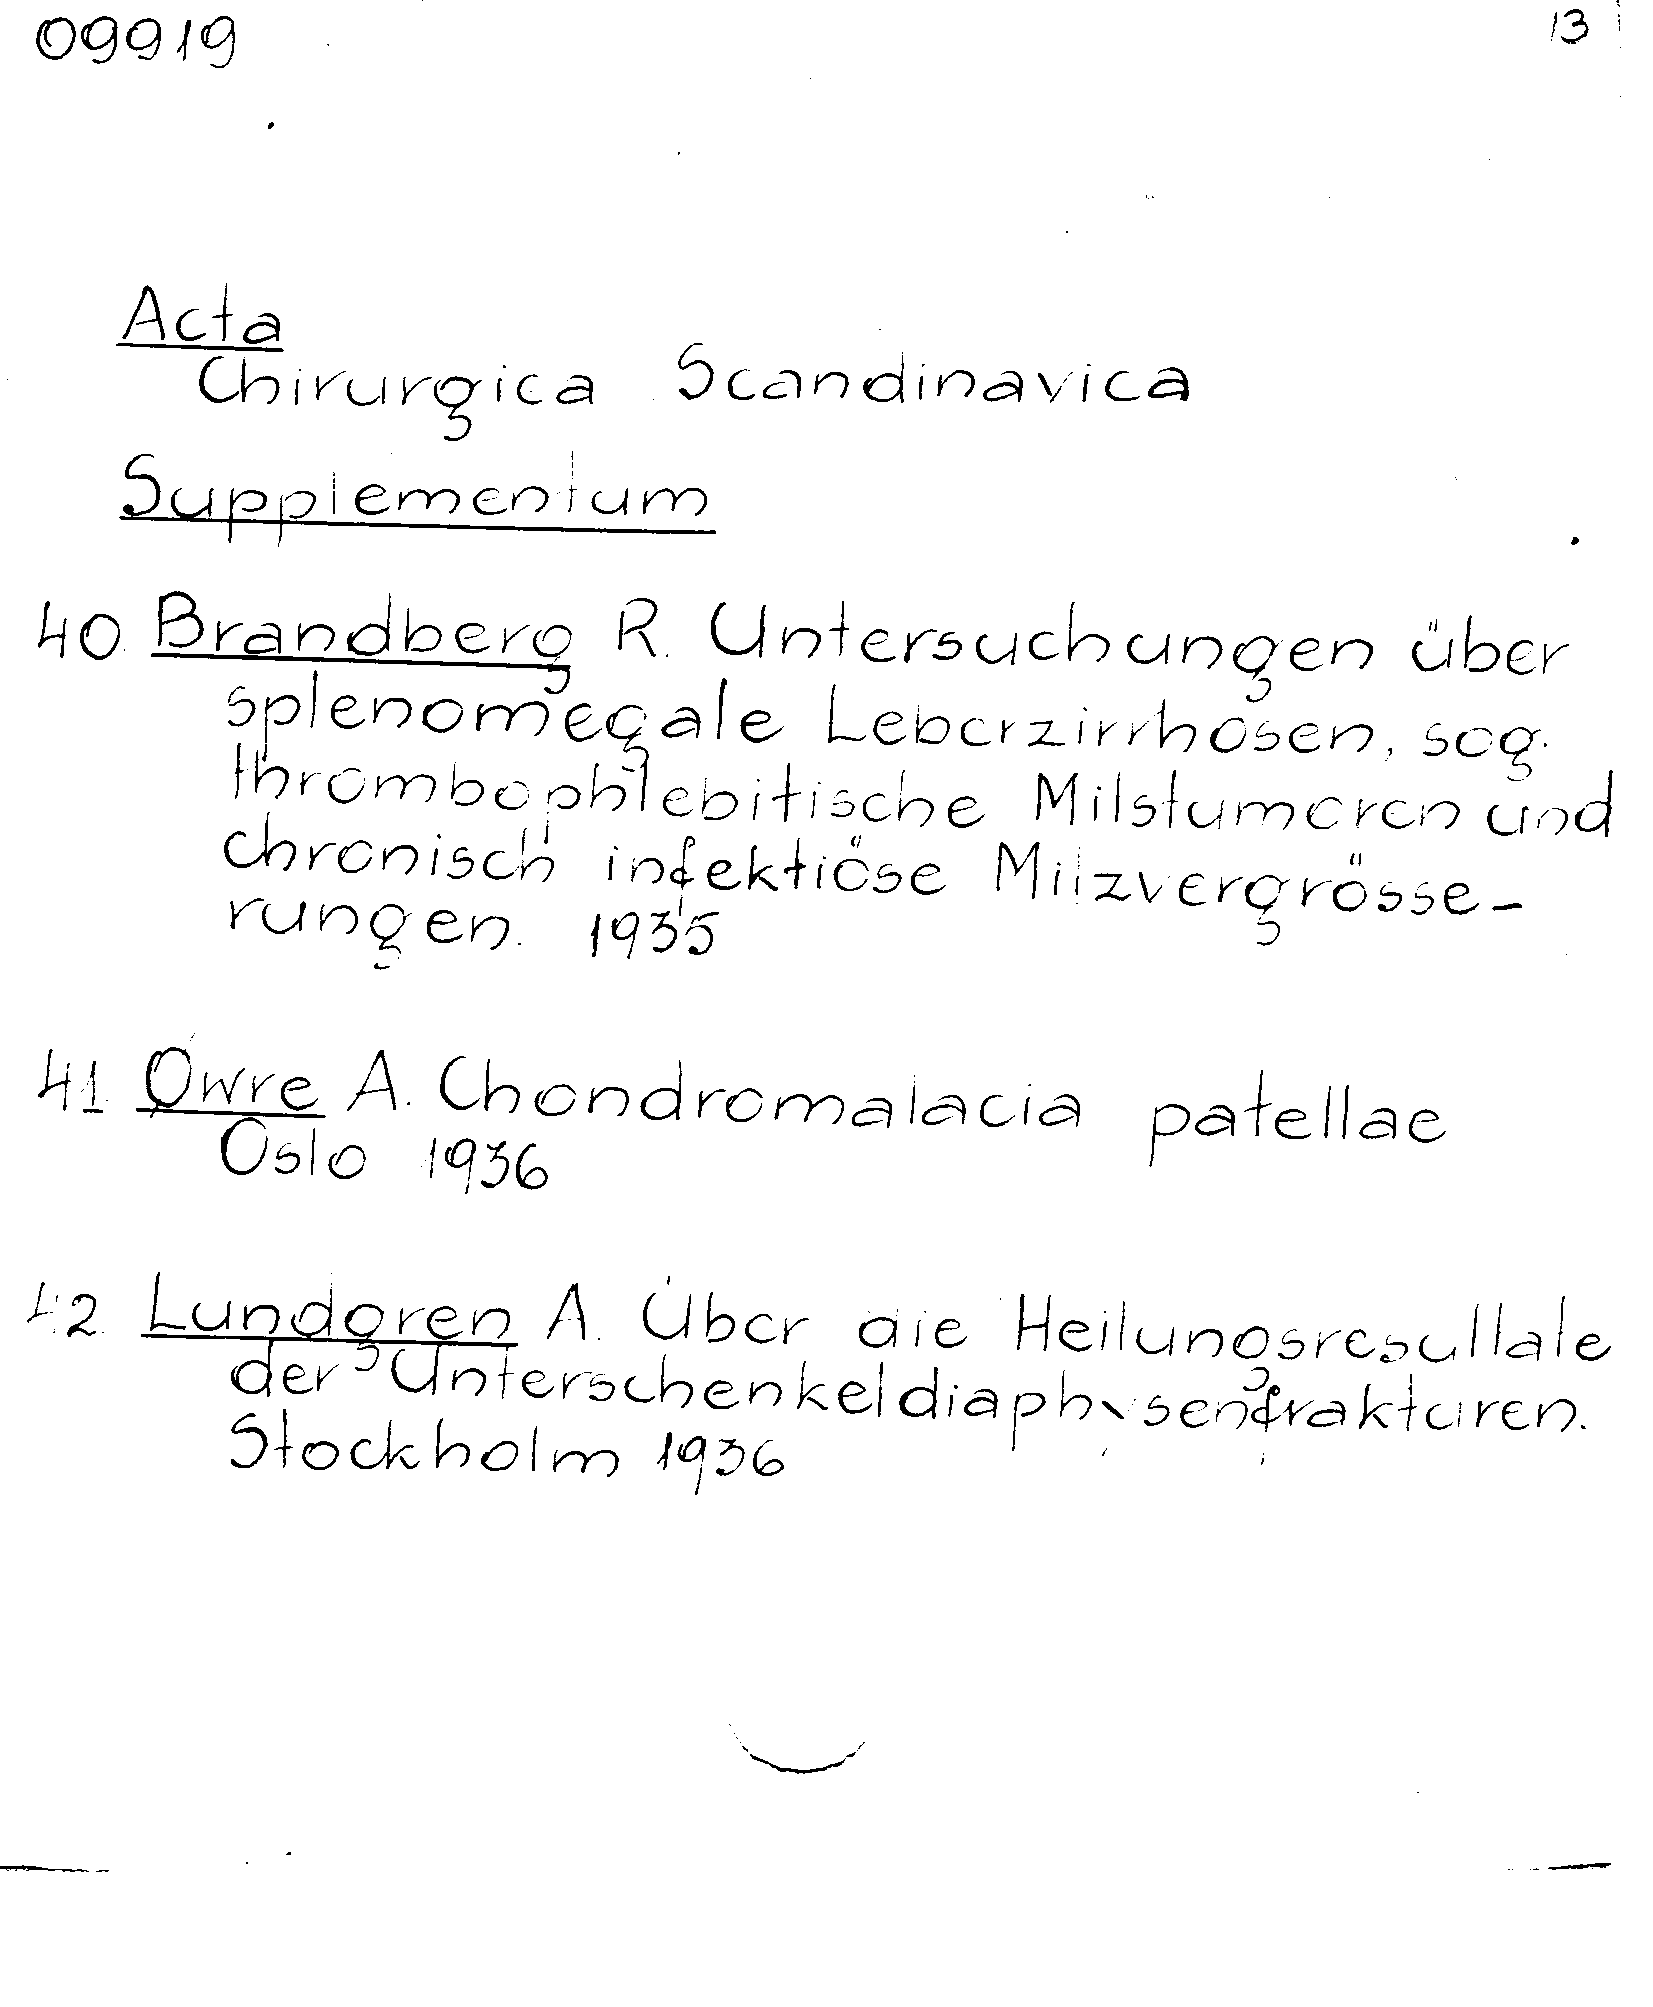 09919
13
Acta
Chirurgica Scandinavica
Supplementum
40. Brandberg R. Untersuchungen über
splenomegale Leberzirrhosen, sog.
thrombophlebitische Milstumoren und
chronisch infektiöse Milzvergrösse-
rungen. 1935
41. Øwre A. Chondromalacia patellae
Oslo 1936
42. Lundgren A. Über die Heilungsresultate
der Unterschenkeldiaphysenfrakturen.
Stockholm 1936